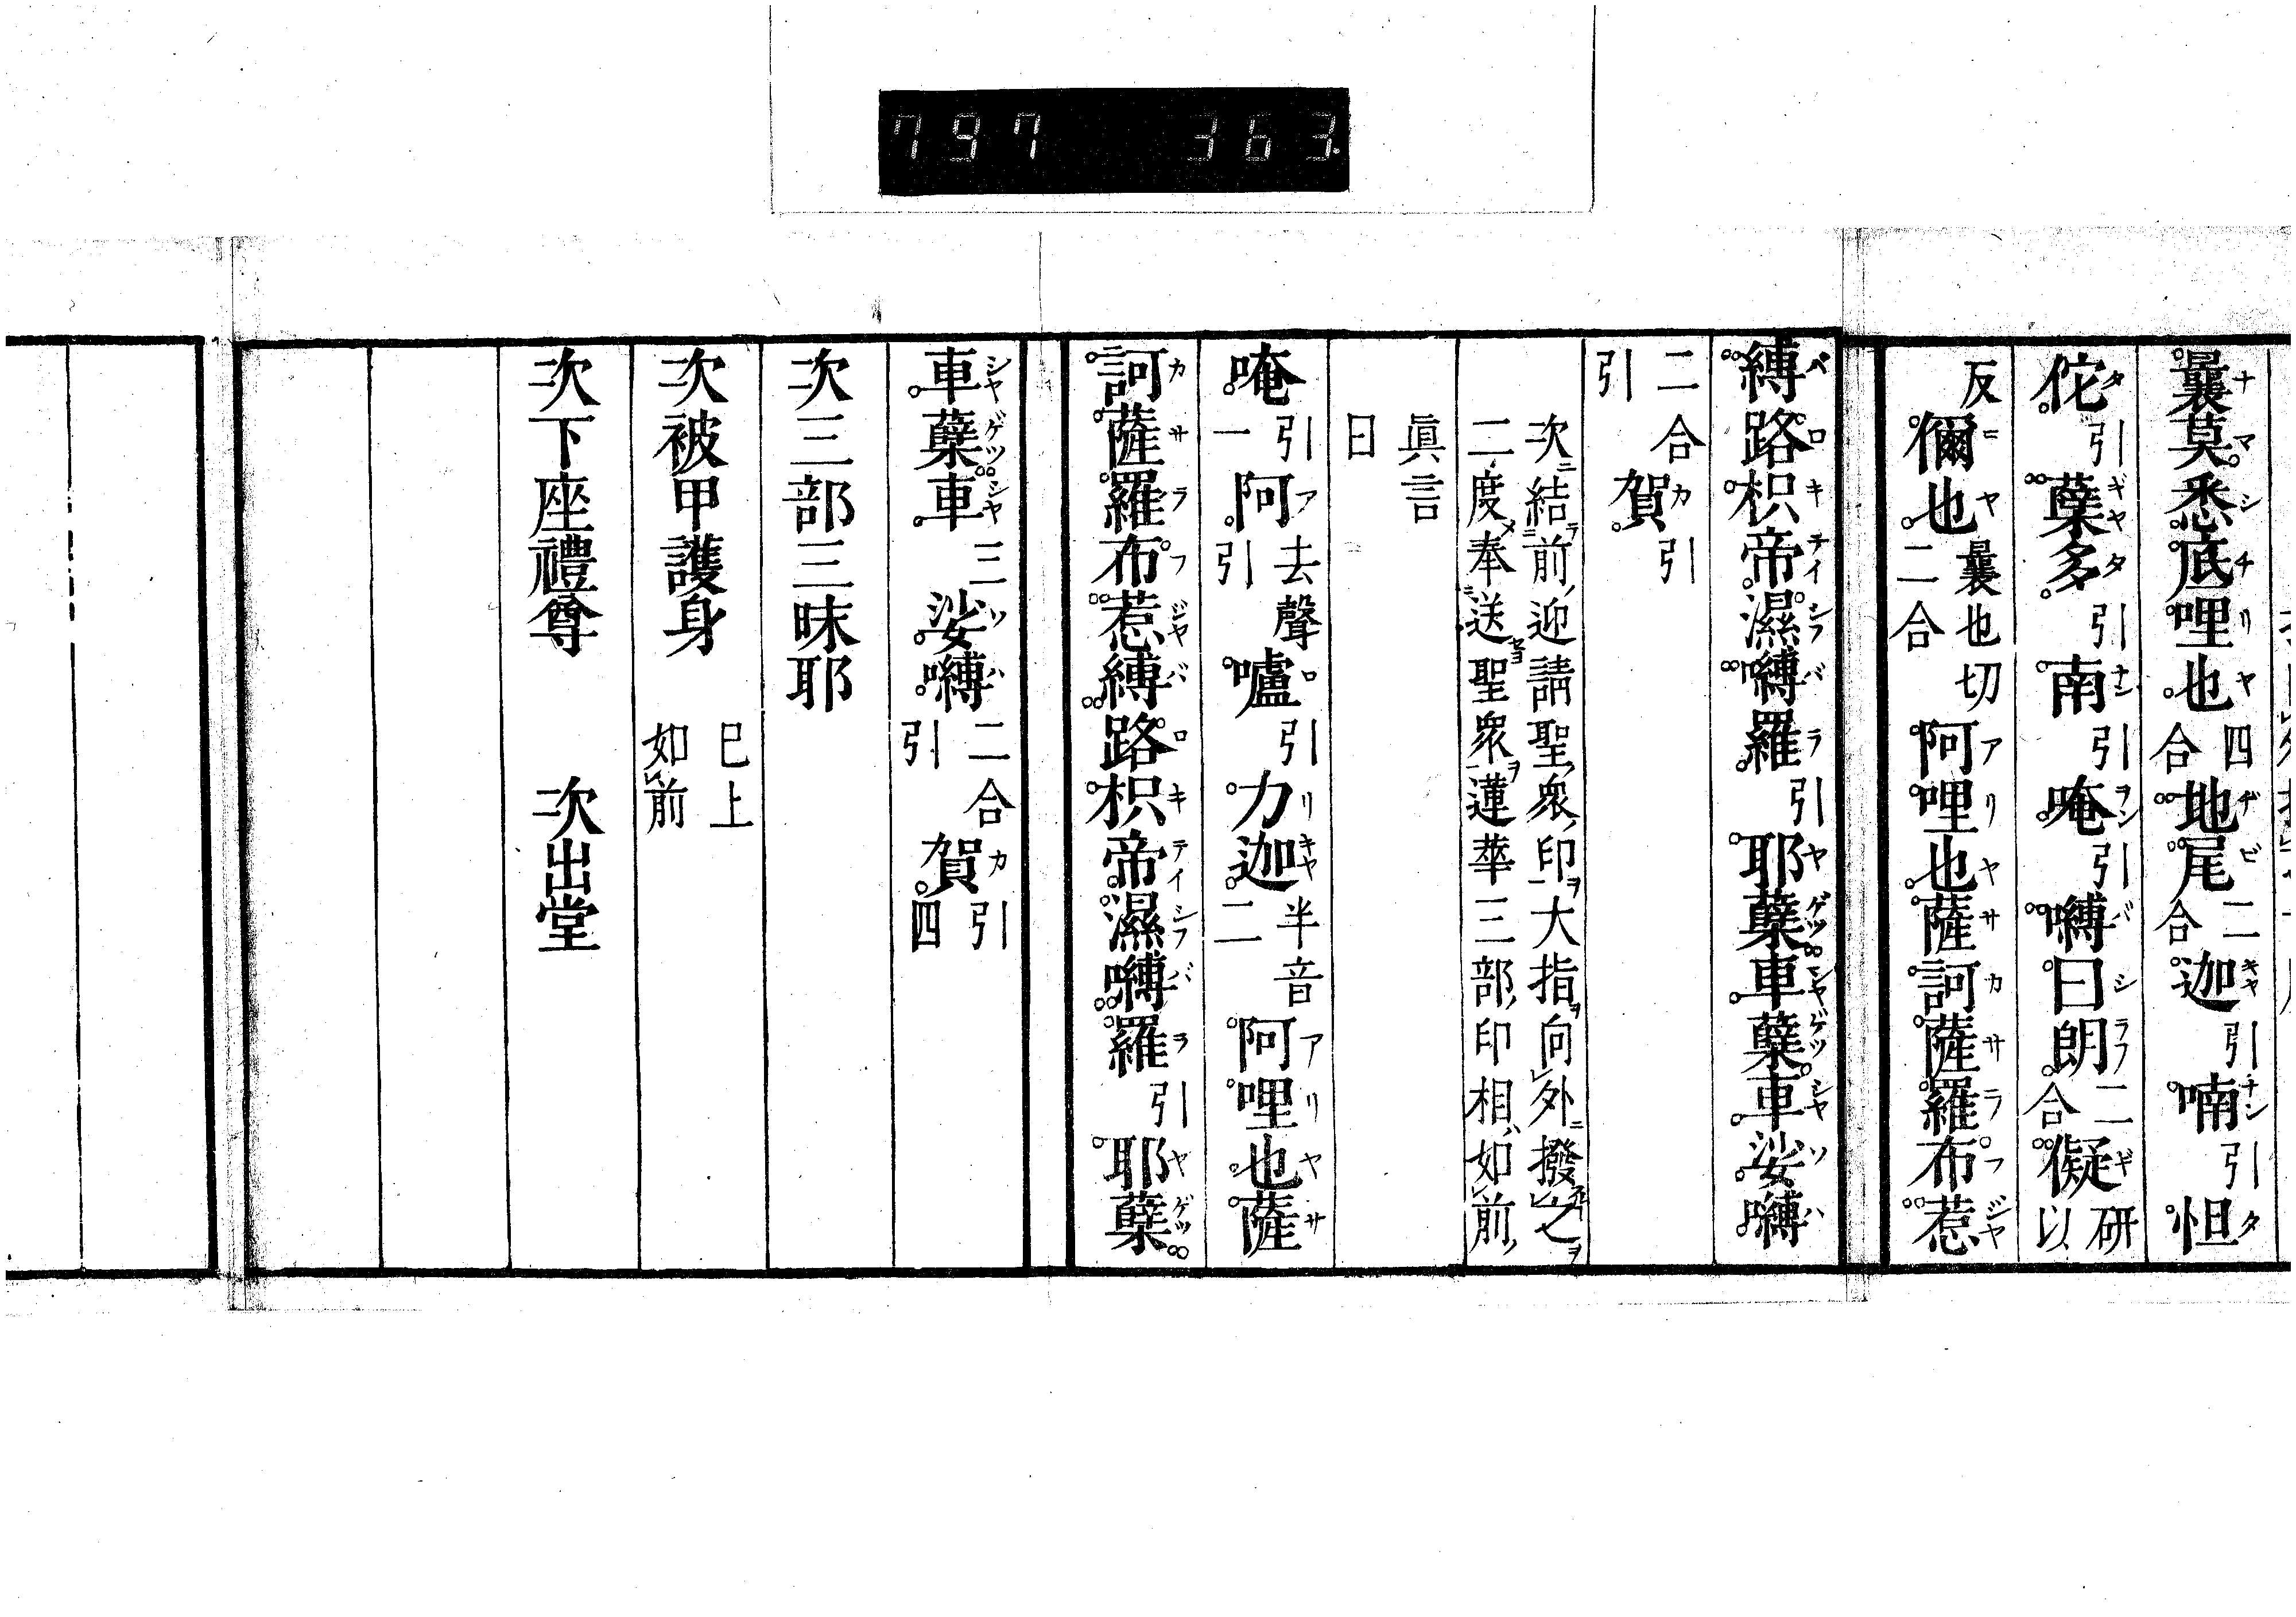 797 363
曩莫悉底哩也四合地尾二合迦引喃引怛
佗引蘖多引南引唵引嚩日朗二合儗研以
反儞也曩也切二合阿哩也薩訶薩羅布惹
縛路枳帝濕嚩羅引耶蘖車蘖車娑嚩
二合引賀引
次結前迎請聖衆印大指向外撥之
二度奉送聖衆蓮華三部印相如前
眞言曰
唵引一阿去聲引嚧引力迦半音二阿哩也薩
訶薩羅布惹縛路枳帝濕嚩羅引耶蘖
車蘖車三娑嚩二合引賀引四
次三部三昧耶
次被甲護身 已上如前
次下座禮尊 次出堂